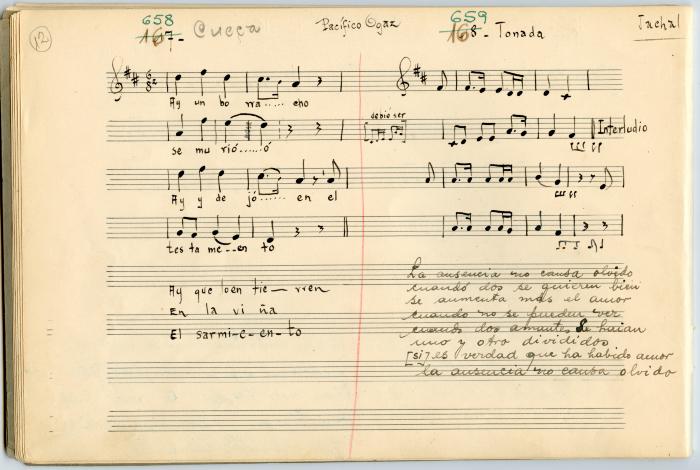 12
658
167- Cueca
Pacífico Ogaz
659
168 - Tonada
Jachal
Ay un bo rra..... cho
se mu rió......ó
Ay y de jó...... en el
tes ta me--en to
Ay que loen tie — rren
En la vi ña
El sarmi-e-en-to
debió ser
Interludio
La ausencia no causa olvido
cuando dos se quieren bien
se aumenta más el amor
cuando no se pueden ver
cuando dos amantes se huían
uno y otro divididos
[si] es verdad que ha habido amor
la ausencia no causa olvido